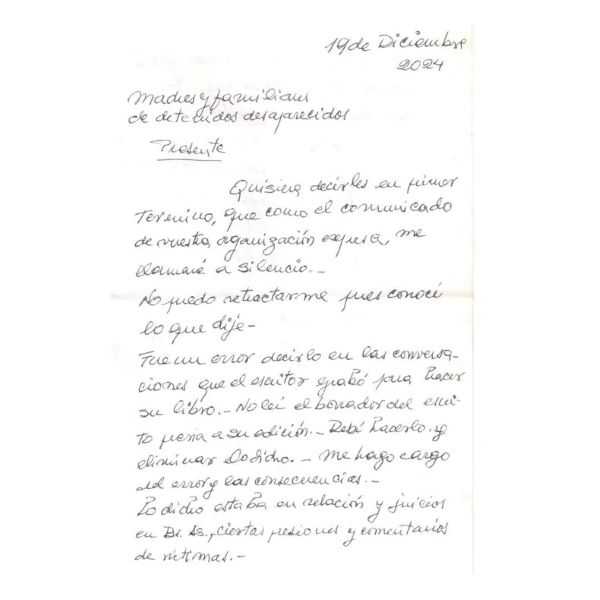 19 de Diciembre
2024
Madres y familiares
de detenidos desaparecidos
Presente
Quisiera decirles en primer
Termino, que como el comunicado
de vuestra organización expresa, me
llamaré a silencio.-
No puedo retractarme pues conocí
lo que dije-
Fue un error decirlo en las conversa-
ciones que el escritor grabó para hacer
su libro.- No leí el borrador del escri-
to previa a su edición.- Debí hacerlo y
eliminar lo dicho.- Me hago cargo
del error y las consecuencias.-
Lo dicho estaba en relación y juicios
en Bs. As., ciertas presiones y comentarios
de víctimas.-